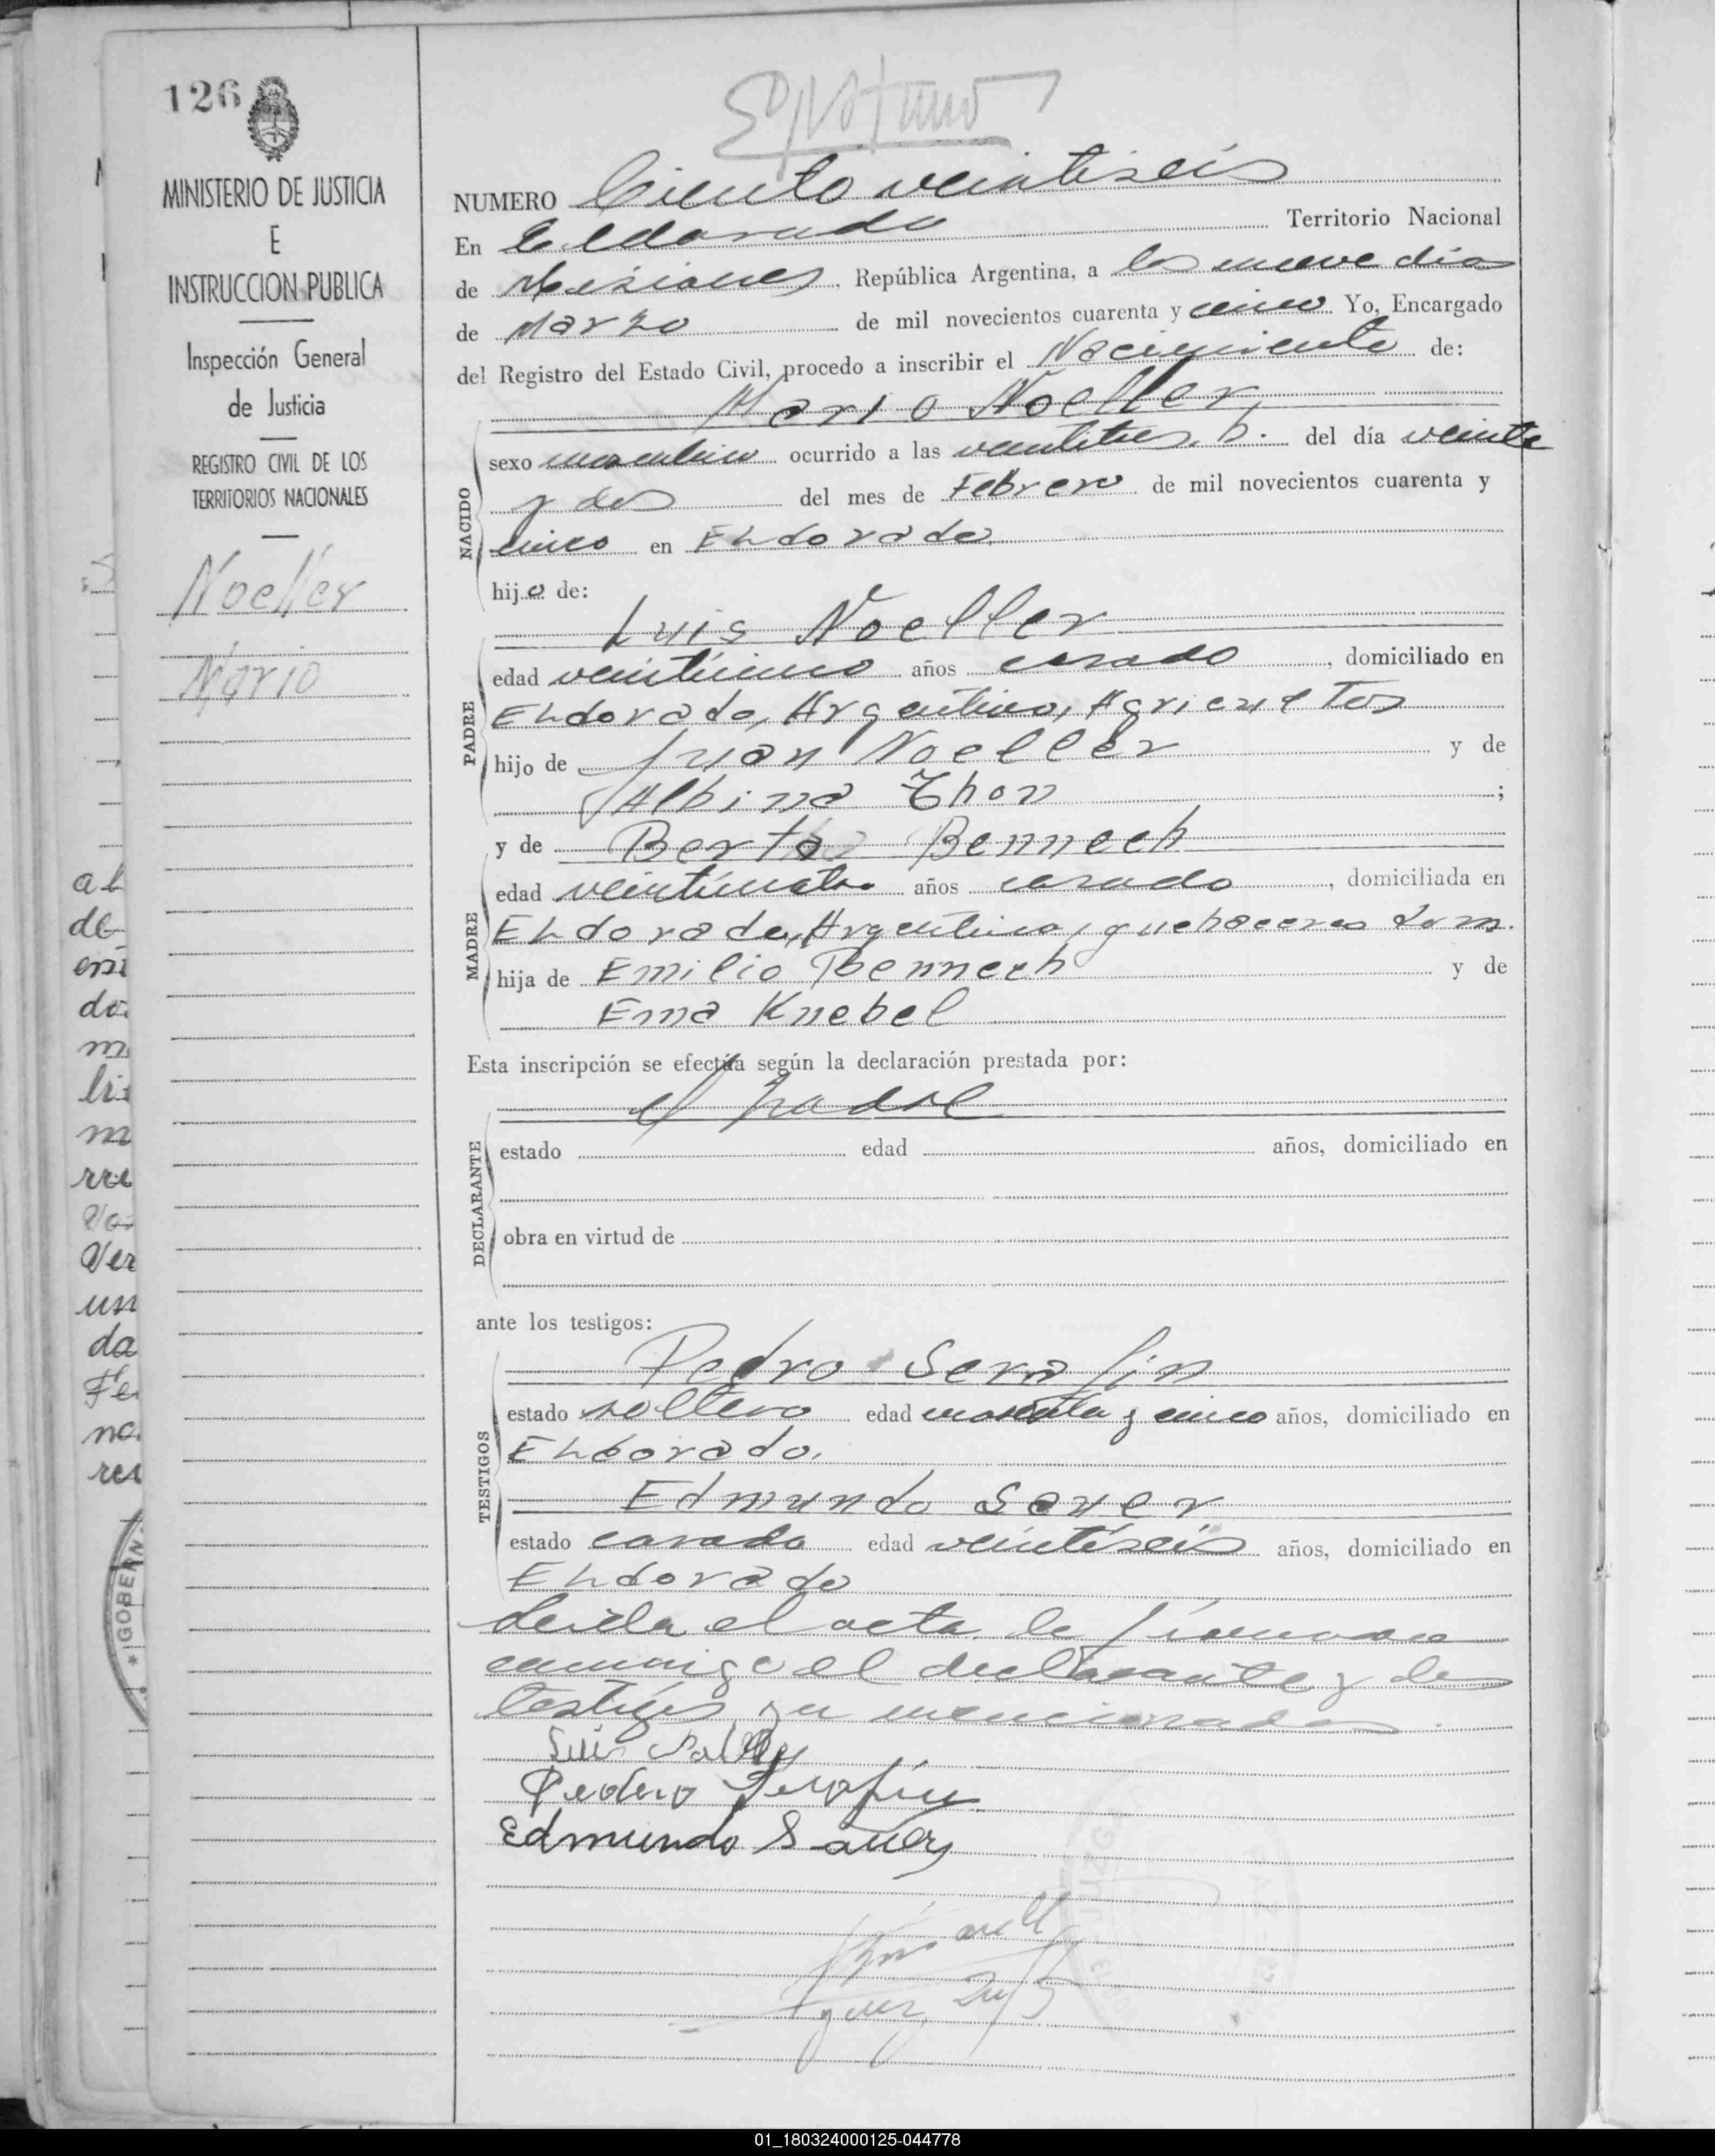 126
MINISTERIO DE JUSTICIA
E
INSTRUCCION PUBLICA
Inspección General
de Justicia
REGISTRO CIVIL DE LOS
TERRITORIOS NACIONALES
Noeller
Mario
NUMERO Ciento veintiseis
En Eldorado Territorio Nacional
de Misiones, República Argentina, a los nueve dias
de Marzo de mil novecientos cuarenta y cinco Yo, Encargado
del Registro del Estado Civil, procedo a inscribir el Nacimiento de:
Mario Noeller,
NACIDO
sexo masculino ocurrido a las veintitres h. del día veinte
y dos del mes de Febrero de mil novecientos cuarenta y
cinco en Eldorado,
hijo de:
Luis Noeller
PADRE
edad veinticinco años casado, domiciliado en
Eldorado, Argentino, Agricultor
hijo de Juan Noeller y de
Albina Thon;
y de Berta Bennech
MADRE
edad veinticuatro años casado, domiciliada en
Eldorado, Argentina, quehaceres dom.
hija de Emilio Bennech y de
Ema Knebel
Esta inscripción se efectúa según la declaración prestada por:
el padre
DECLARANTE
estado edad años, domiciliado en
obra en virtud de
ante los testigos:
Pedro Serafin
TESTIGOS
estado soltero edad y cinco años, domiciliado en
Eldorado.
Edmundo Sauer
estado casado edad veintiseis años, domiciliado en
Eldorado
Leida el acta la firmaron
conmigo el declarante y los
testigos ya mencionados.
Luis
Pedro Serafin
Edmundo Sauer
al
de
do
m
li
m
rre
Ver
un
da
Fe
no
res
GOBERN
01_180324000125-044778